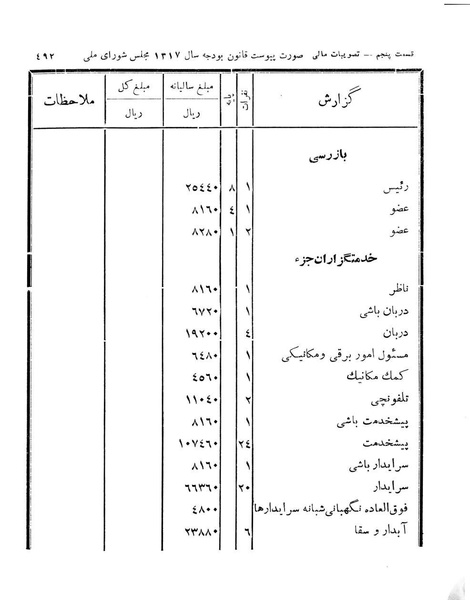 قسمت پنجم — تصویبات مالی صورت پیوست قانون بودجه سال ۱۳۱۷ مجلس شورای ملی ۴۹۲
گزارش نفرات پایه مبلغ سالیانه ریال مبلغ کل ریال ملاحظات
بازرسی
رئیس ۱ ۸ ۲۵۴۴۰
عضو ۱ ۴ ۸۱۶۰
عضو ۲ ۱ ۸۲۸۰
خدمتگزاران جزء
ناظر ۱ ۸۱۶۰
دربان باشی ۱ ۶۷۲۰
دربان ۴ ۱۹۲۰۰
مسئول امور برقی ومکانیکی ۱ ۶۴۸۰
کمك مکانیك ۱ ۴۵۶۰
تلفونچی ۲ ۱۱۰۴۰
پیشخدمت باشی ۱ ۸۱۶۰
پیشخدمت ۲۴ ۱۰۷۴۶۰
سرایدار باشی ۱ ۸۱۶۰
سرایدار ۲۰ ۶۶۳۶۰
فوق‌العاده نگهبانی شبانه سرایدارها ۴۸۰۰
آبدار و سقا ۶ ۲۳۸۸۰